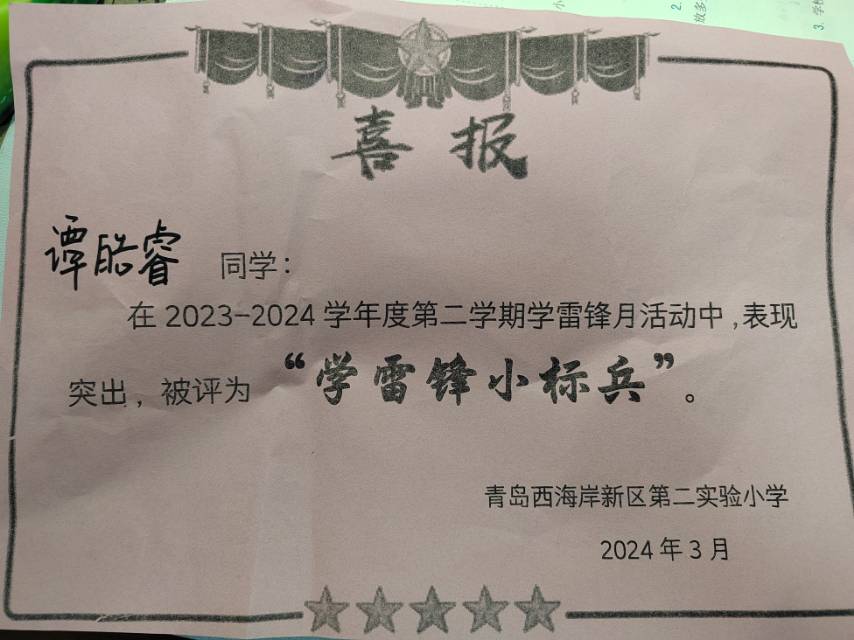 喜报
谭皓睿 同学：
在 2023-2024 学年度第二学期学雷锋月活动中，表现
突出，被评为 “学雷锋小标兵”。
青岛西海岸新区第二实验小学
2024 年 3 月